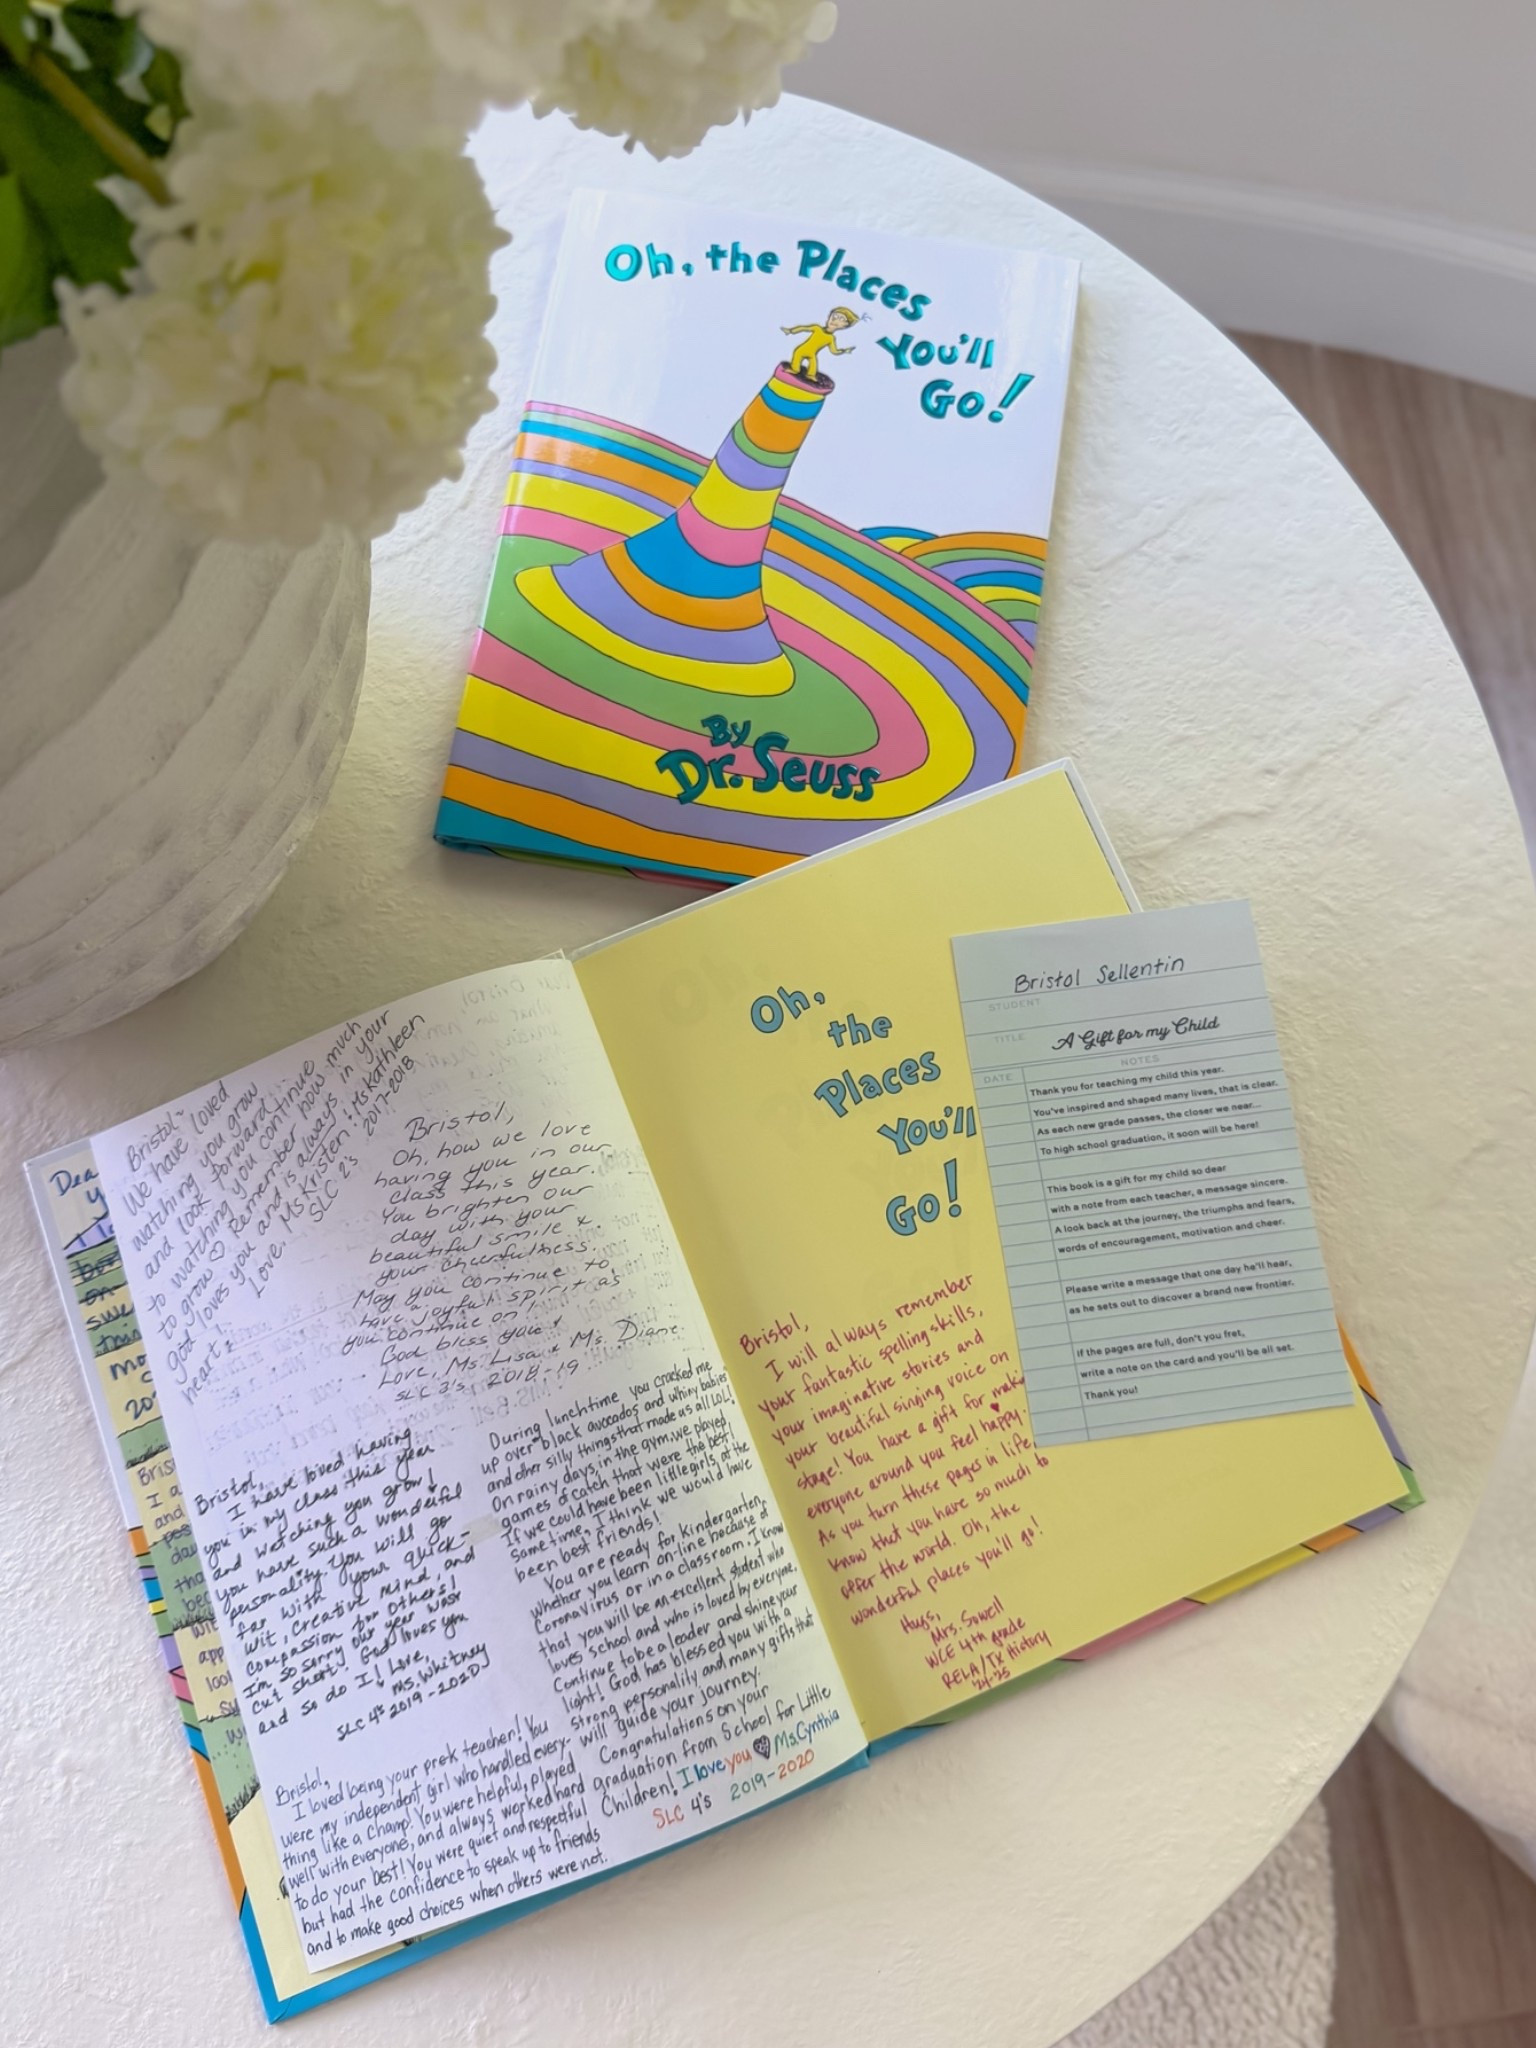 Oh, the Places
You'll
Go!
By
Dr. Seuss
Bristol~
We have loved
watching you grow
and look forward
to watching you continue
to grow ♡ Remember how much
God loves you and is always in your
heart!
Love, Ms. Kristen & Ms. Kathleen
SLC 2's 2017-2018
Bristol,
Oh, how we love
having you in our
class this year.
You brighten our
day with your
beautiful smile &
your cheerfulness.
May you continue to
have a joyful spirit as
you continue on!
God bless you &
Love, Ms. Lisa & Ms. Diane
SLC 3's 2018-19
Bristol,
I have loved having
you in my class this year
and watching you grow!
You have such a wonderful
personality. You will go
far with your quick-
wit, creative mind, and
compassion for others!
I'm so sorry our year was
cut short. God loves you
and so do I! Love,
Ms. Whitney
SLC 4's 2019-2020
Bristol,
I loved being your pre-k teacher! You
were my independent girl who handled every-
thing like a champ! You were helpful, played
well with everyone, and always worked hard
to do your best! You were quiet and respectful
but had the confidence to speak up to friends
and to make good choices when others were not.
During lunchtime you cracked me
up over black avocados and whiny babies
and other silly things that made us all LOL!
On rainy days, in the gym, we played
games of catch that were the best!
If we could have been little girls at the
same time, I think we would have
been best friends!
You are ready for Kindergarten,
whether you learn on-line because of
CoronaVirus or in a classroom. I know
that you will be an excellent student who
loves school and who is loved by everyone.
Continue to be a leader and shine your
light! God has blessed you with a
strong personality and many gifts that
will guide your journey.
Congratulations on your
graduation from School for Little
Children! I love you ♥ Ms. Cynthia
SLC 4's 2019-2020
Oh,
the
Places
You'll
Go!
Bristol,
I will always remember
your fantastic spelling skills,
your imaginative stories and
your beautiful singing voice on
stage! You have a gift for
everyone around you feel happy. ♥
As you turn these pages in life,
know that you have so much to
offer the world. Oh, the
wonderful places you'll go!
Hugs,
Mrs. Sowell
WCE 4th grade
RELA/TX History
'24-'25
Bristol Sellentin
STUDENT
TITLE A Gift for my Child
DATE NOTES
Thank you for teaching my child this year.
You've inspired and shaped many lives, that is clear.
As each new grade passes, the closer we near...
To high school graduation, it soon will be here!
This book is a gift for my child so dear
with a note from each teacher, a message sincere.
A look back at the journey, the triumphs and fears,
words of encouragement, motivation and cheer.
Please write a message that one day he'll hear,
as he sets out to discover a brand new frontier.
If the pages are full, don't you fret,
write a note on the card and you'll be all set.
Thank you!